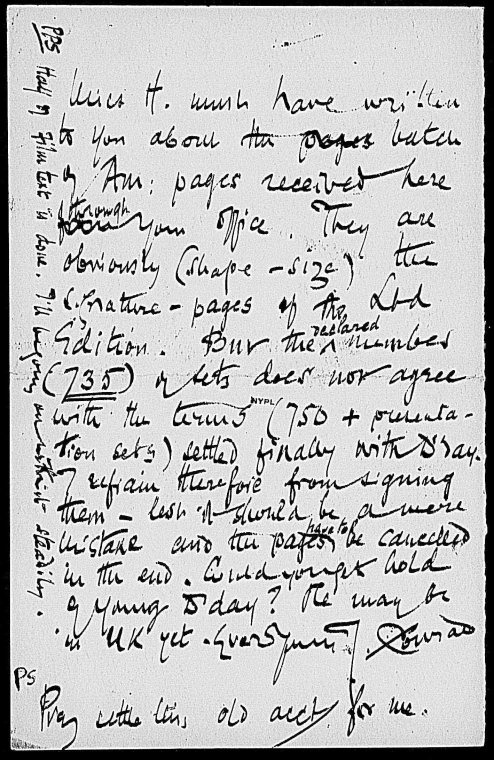 Miss H. must have written
to you about the pages batch
of Am: pages received here
from through your office. They are
obviously (shape – size) the
signature – pages of the Ltd
Edition. But the declared number
(735) of sets does not agree
with the terms (750 + presenta-
tion sets) settled finally with D'day.
I refrain therefore from signing
them – lest it should be a mere
mistake and the pages have to be cancelled
in the end. Could you get hold
of young D'day? He may be
in UK yet. Ever Yours J. Conrad
NYPL
PS
Pray settle this old acct for me.
PPS Half of Film text is done. I'll be going on with it steadily.